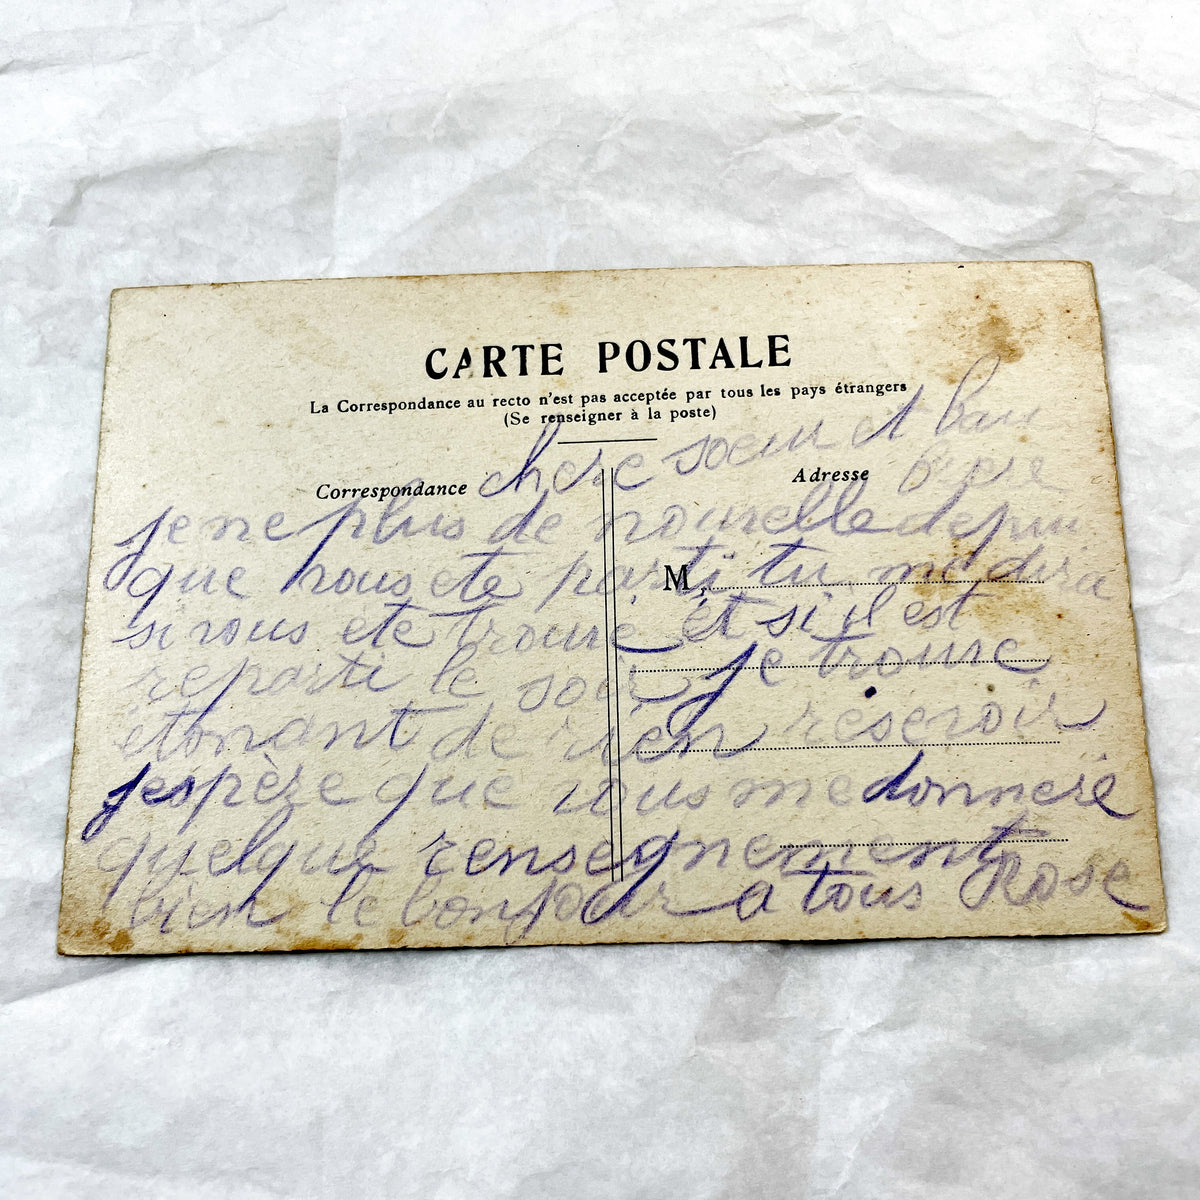 CARTE POSTALE
La Correspondance au recto n'est pas acceptée par tous les pays étrangers
(Se renseigner à la poste)
Correspondance
Adresse
M
chere soeur et bau
père
je ne plus de nouvelle depui
que vous ete parti tu me dira
si vous ete trouvé et si il est
reparti le soir je trouve
étonant de rien reservoir
jespère que vous me donneré
quelque rensegnement
bien le bonjour a tous Rose